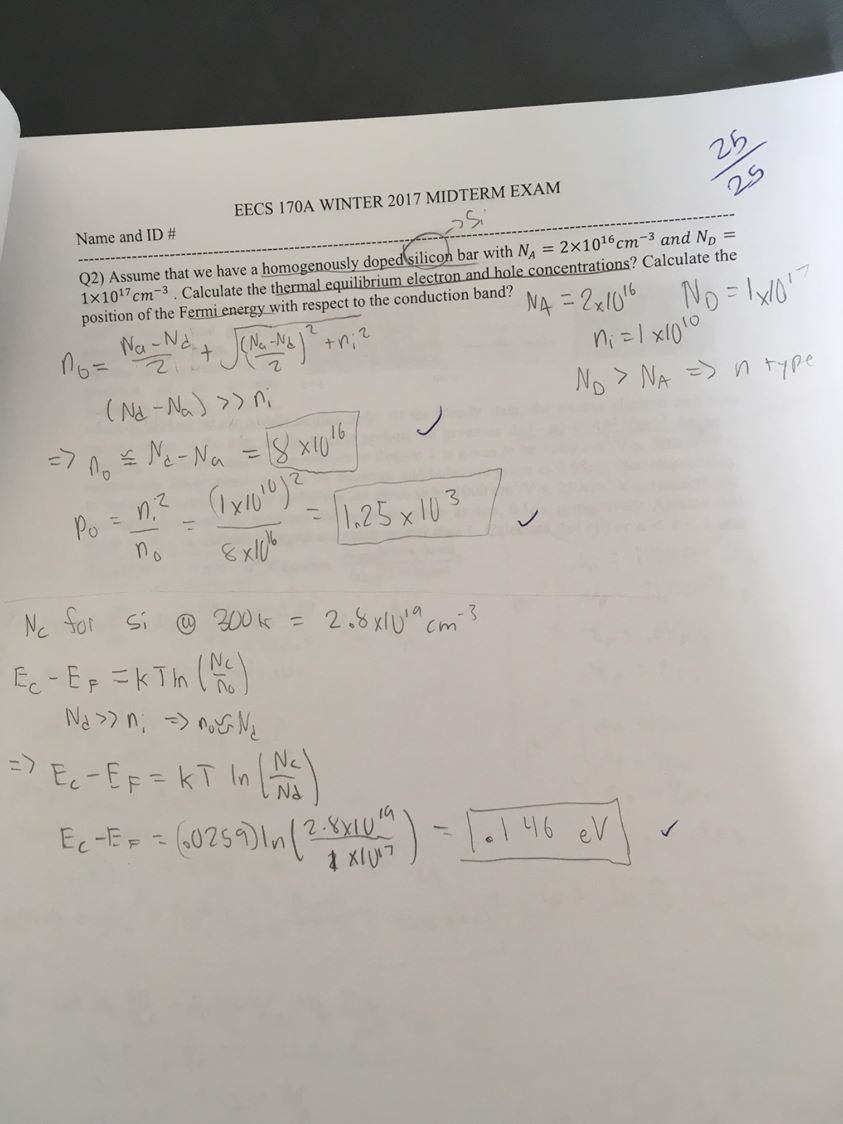 25/25
EECS 170A WINTER 2017 MIDTERM EXAM
Name and ID #
→Si
Q2) Assume that we have a homogenously doped silicon bar with N_A = 2×10^16 cm^−3 and N_D =
1×10^17 cm^−3 . Calculate the thermal equilibrium electron and hole concentrations? Calculate the
position of the Fermi energy with respect to the conduction band?
N_A = 2x10^16 N_D = 1x10^17
n_i = 1x10^10
N_D > N_A => n type
n_0 = (N_a-N_d)/2 + √(((N_a-N_d)/2)^2 + n_i^2)
(N_d-N_a) >> n_i
=> n_0 ≅ N_d-N_a = 8x10^16 ✓
P_0 = n_i^2/n_0 = (1x10^10)^2/8x10^16 = 1.25x10^3 ✓
N_c for Si @ 300k = 2.8x10^19 cm^-3
E_c-E_F = kT ln(N_c/n_0)
N_d >> n_i => n_0 ≅ N_d
=> E_c-E_F = kT ln(N_c/N_d)
E_c-E_F = (.0259) ln(2.8x10^19/1x10^17) = .146 eV ✓